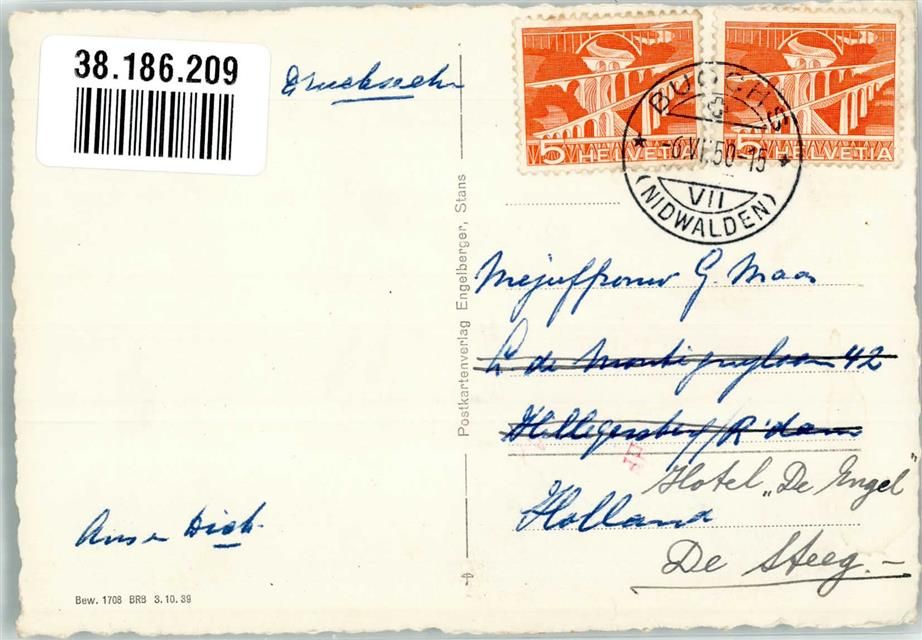 38.186.209
Drucksache
5 HELVETIA
5 HELVETIA
BUOCHS
-6.VI.50-15
VII
(NIDWALDEN)
Postkartenverlag Engelberger, Stans
Mejuffrouw G. Maas
L de Montignylaan 42
Hillegersberg/R'dam
Hotel „De Engel"
Holland
De Steeg.-
Ans en Dick
Bew. 1708 BRB 3.10.39